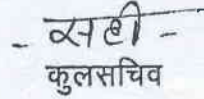 - सही -
कुलसचिव